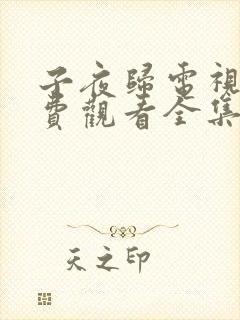 子夜歸電視
費觀看全集
天之印